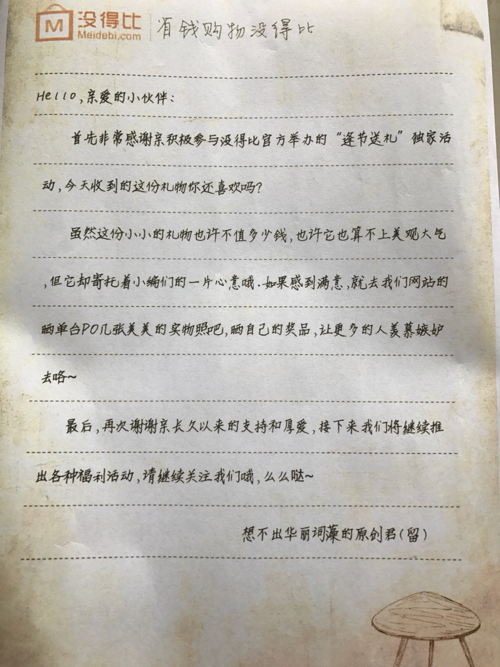 没得比
Meidebi.com
有钱购物没得比
Hello,亲爱的小伙伴:
首先非常感谢亲积极参与没得比官方举办的“逢节送礼”独家活
动,今天收到的这份礼物你还喜欢吗?
虽然这份小小的礼物也许不值多少钱,也许它也算不上美观大气
,但它却寄托着小编们的一片心意哦.如果感到满意,就去我们网站的
晒单台PO几张美美的实物照吧,晒自己的奖品,让更多的人羡慕嫉妒
去咯~
最后,再次谢谢亲长久以来的支持和厚爱,接下来我们将继续推
出各种福利活动,请继续关注我们哦,么么哒~
想不出华丽词藻的原创君(留)